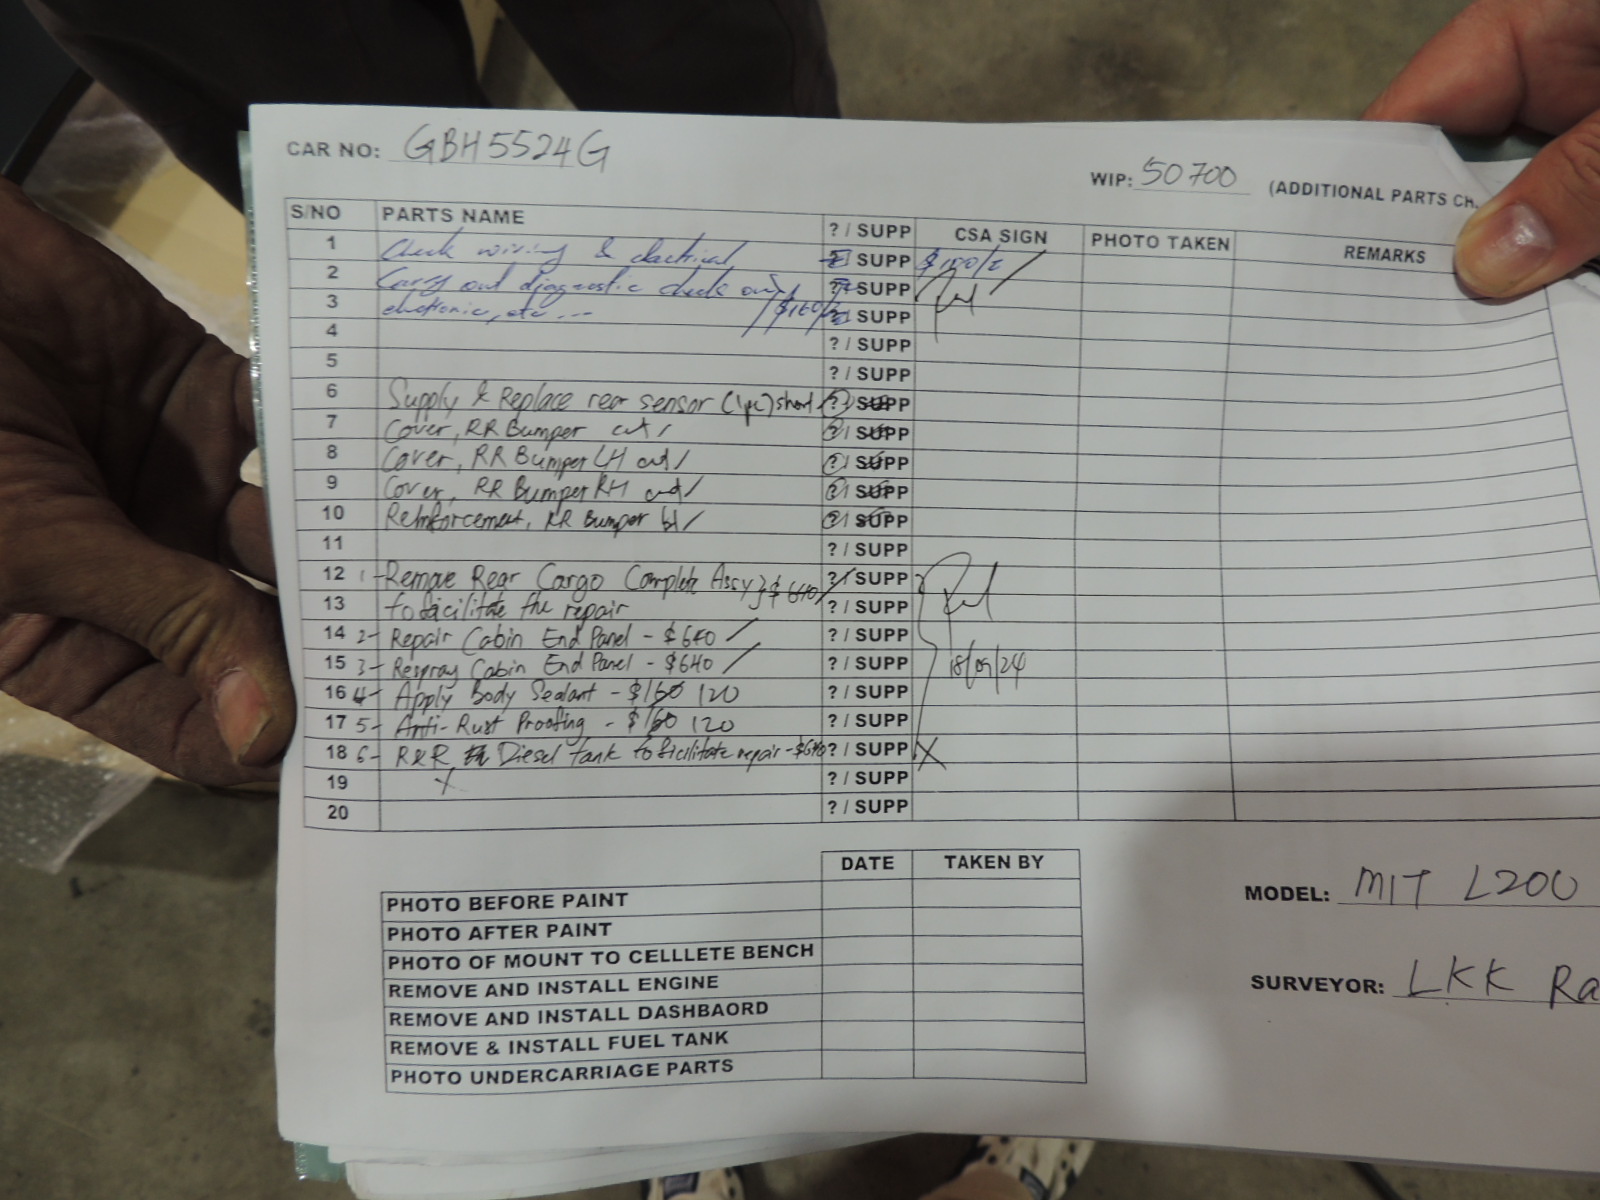 CAR NO: GBH5524G
WIP: 50700 (ADDITIONAL PARTS CH
S/NO PARTS NAME ? / SUPP CSA SIGN PHOTO TAKEN REMARKS
1 Check wiring & electrical SUPP
2 Carry out diagnostic check on SUPP
3 electronic, etc... $160/ SUPP
4 ? / SUPP
5 ? / SUPP
6 Supply & Replace rear sensor (1pc) short ? / SUPP
7 Cover, RR Bumper cut / ? / SUPP
8 Cover, RR Bumper LH cut / ? / SUPP
9 Cover, RR Bumper RH cut / ? / SUPP
10 Reinforcement, RR Bumper / ? / SUPP
11 ? / SUPP
12 1- Remove Rear Cargo Complete Assy } $640/ ? / SUPP
13 to facilitate the repair ? / SUPP
14 2- Repair Cabin End Panel - $640 / ? / SUPP
15 3- Respray Cabin End Panel - $640 / ? / SUPP 18/09/24
16 4- Apply Body Sealant - $160 120 ? / SUPP
17 5- Anti-Rust Proofing - $160 120 ? / SUPP
18 6- R&R Diesel tank to facilitate repair - $640 ? / SUPP X
19 X ? / SUPP
20 ? / SUPP
DATE TAKEN BY
PHOTO BEFORE PAINT
PHOTO AFTER PAINT
PHOTO OF MOUNT TO CELLLETE BENCH
REMOVE AND INSTALL ENGINE
REMOVE AND INSTALL DASHBAORD
REMOVE & INSTALL FUEL TANK
PHOTO UNDERCARRIAGE PARTS
MODEL: MIT L200
SURVEYOR: LKK Ra